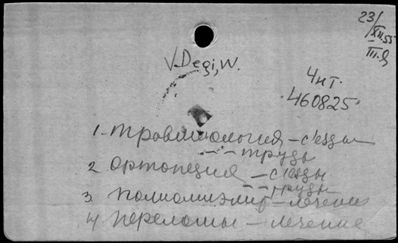 23/XII.55
III.Я
V. Degi, W.
4 нт.
460825
1. Травматология – съезды
– – труды
2 ортопедия – съезды
– – труды
3 полиомиэлит – лечение
4 переломы – лечение